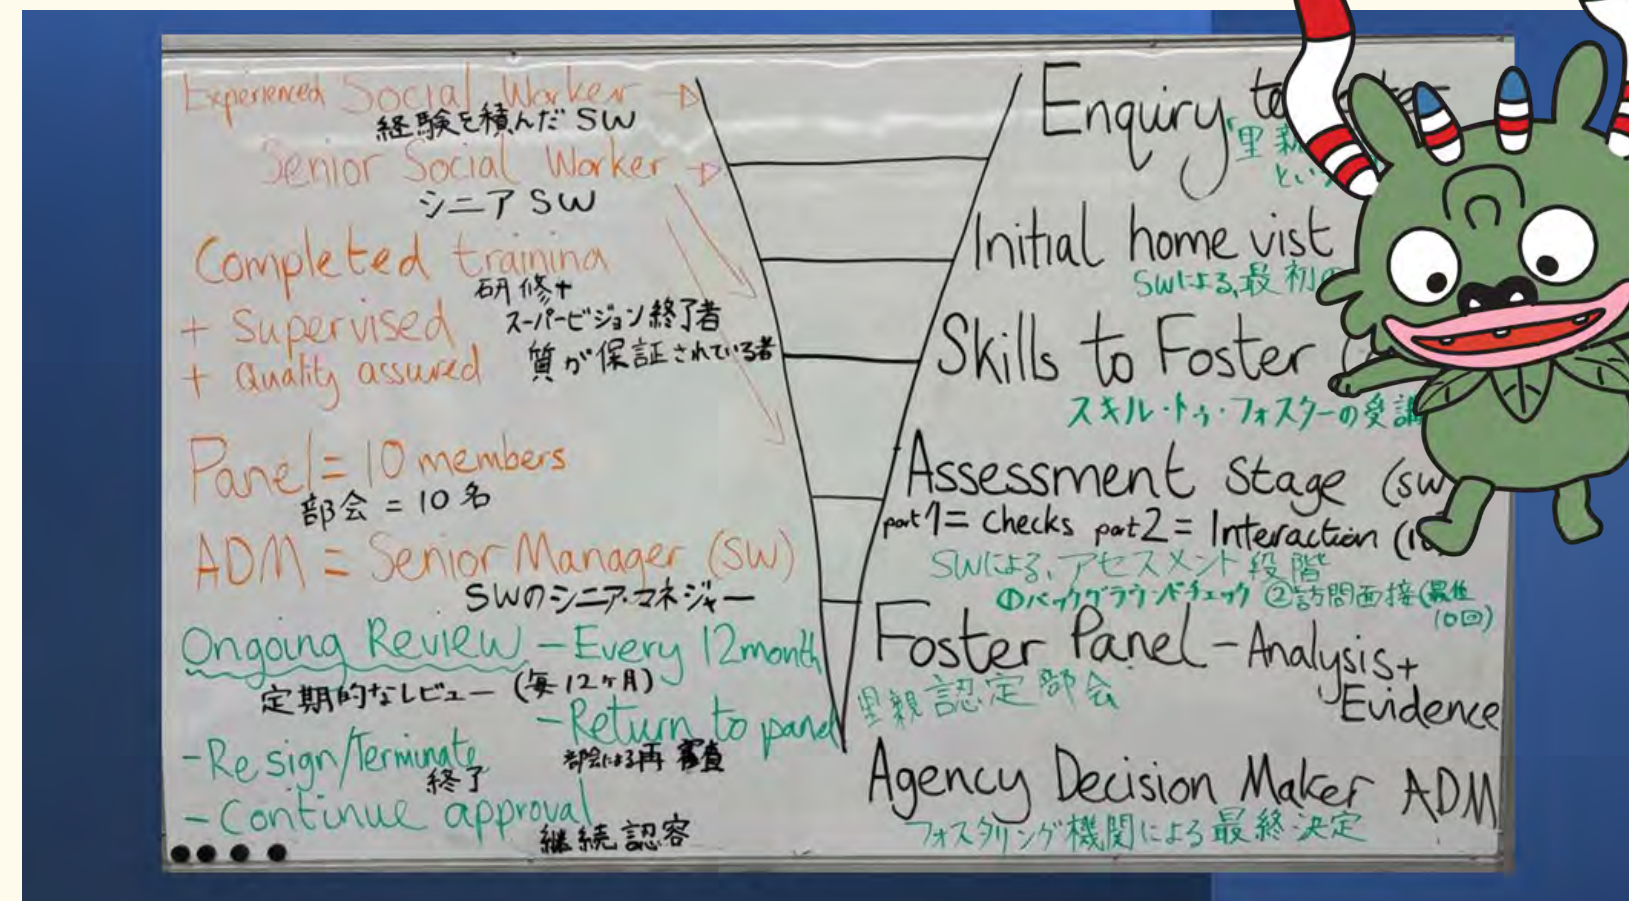 Experienced Social Worker
経験を積んだ SW
Senior Social Worker
シニア SW
Completed training
研修+
+ Supervised
スーパービジョン終了者
+ Quality assured
質が保証されている者
Panel = 10 members
部会 = 10名
ADM = Senior Manager (SW)
SWのシニア・マネジャー
Ongoing Review - Every 12month
定期的なレビュー (毎12ヶ月)
- Return to panel
部会による再審査
- Resign/Terminate
終了
- Continue approval
継続認容
Enquiry
里親
とい
Initial home vist
SWによる、最初の
Skills to Foster
スキル・トゥ・フォスターの受講
Assessment Stage (SW
part 1 = Checks part 2 = Interaction (10
SWによる、アセスメント段階
①バックグラウンドチェック ②訪問面接(最低
10回)
Foster Panel - Analysis+
Evidence
里親認定部会
Agency Decision Maker ADM
フォスタリング機関による最終決定